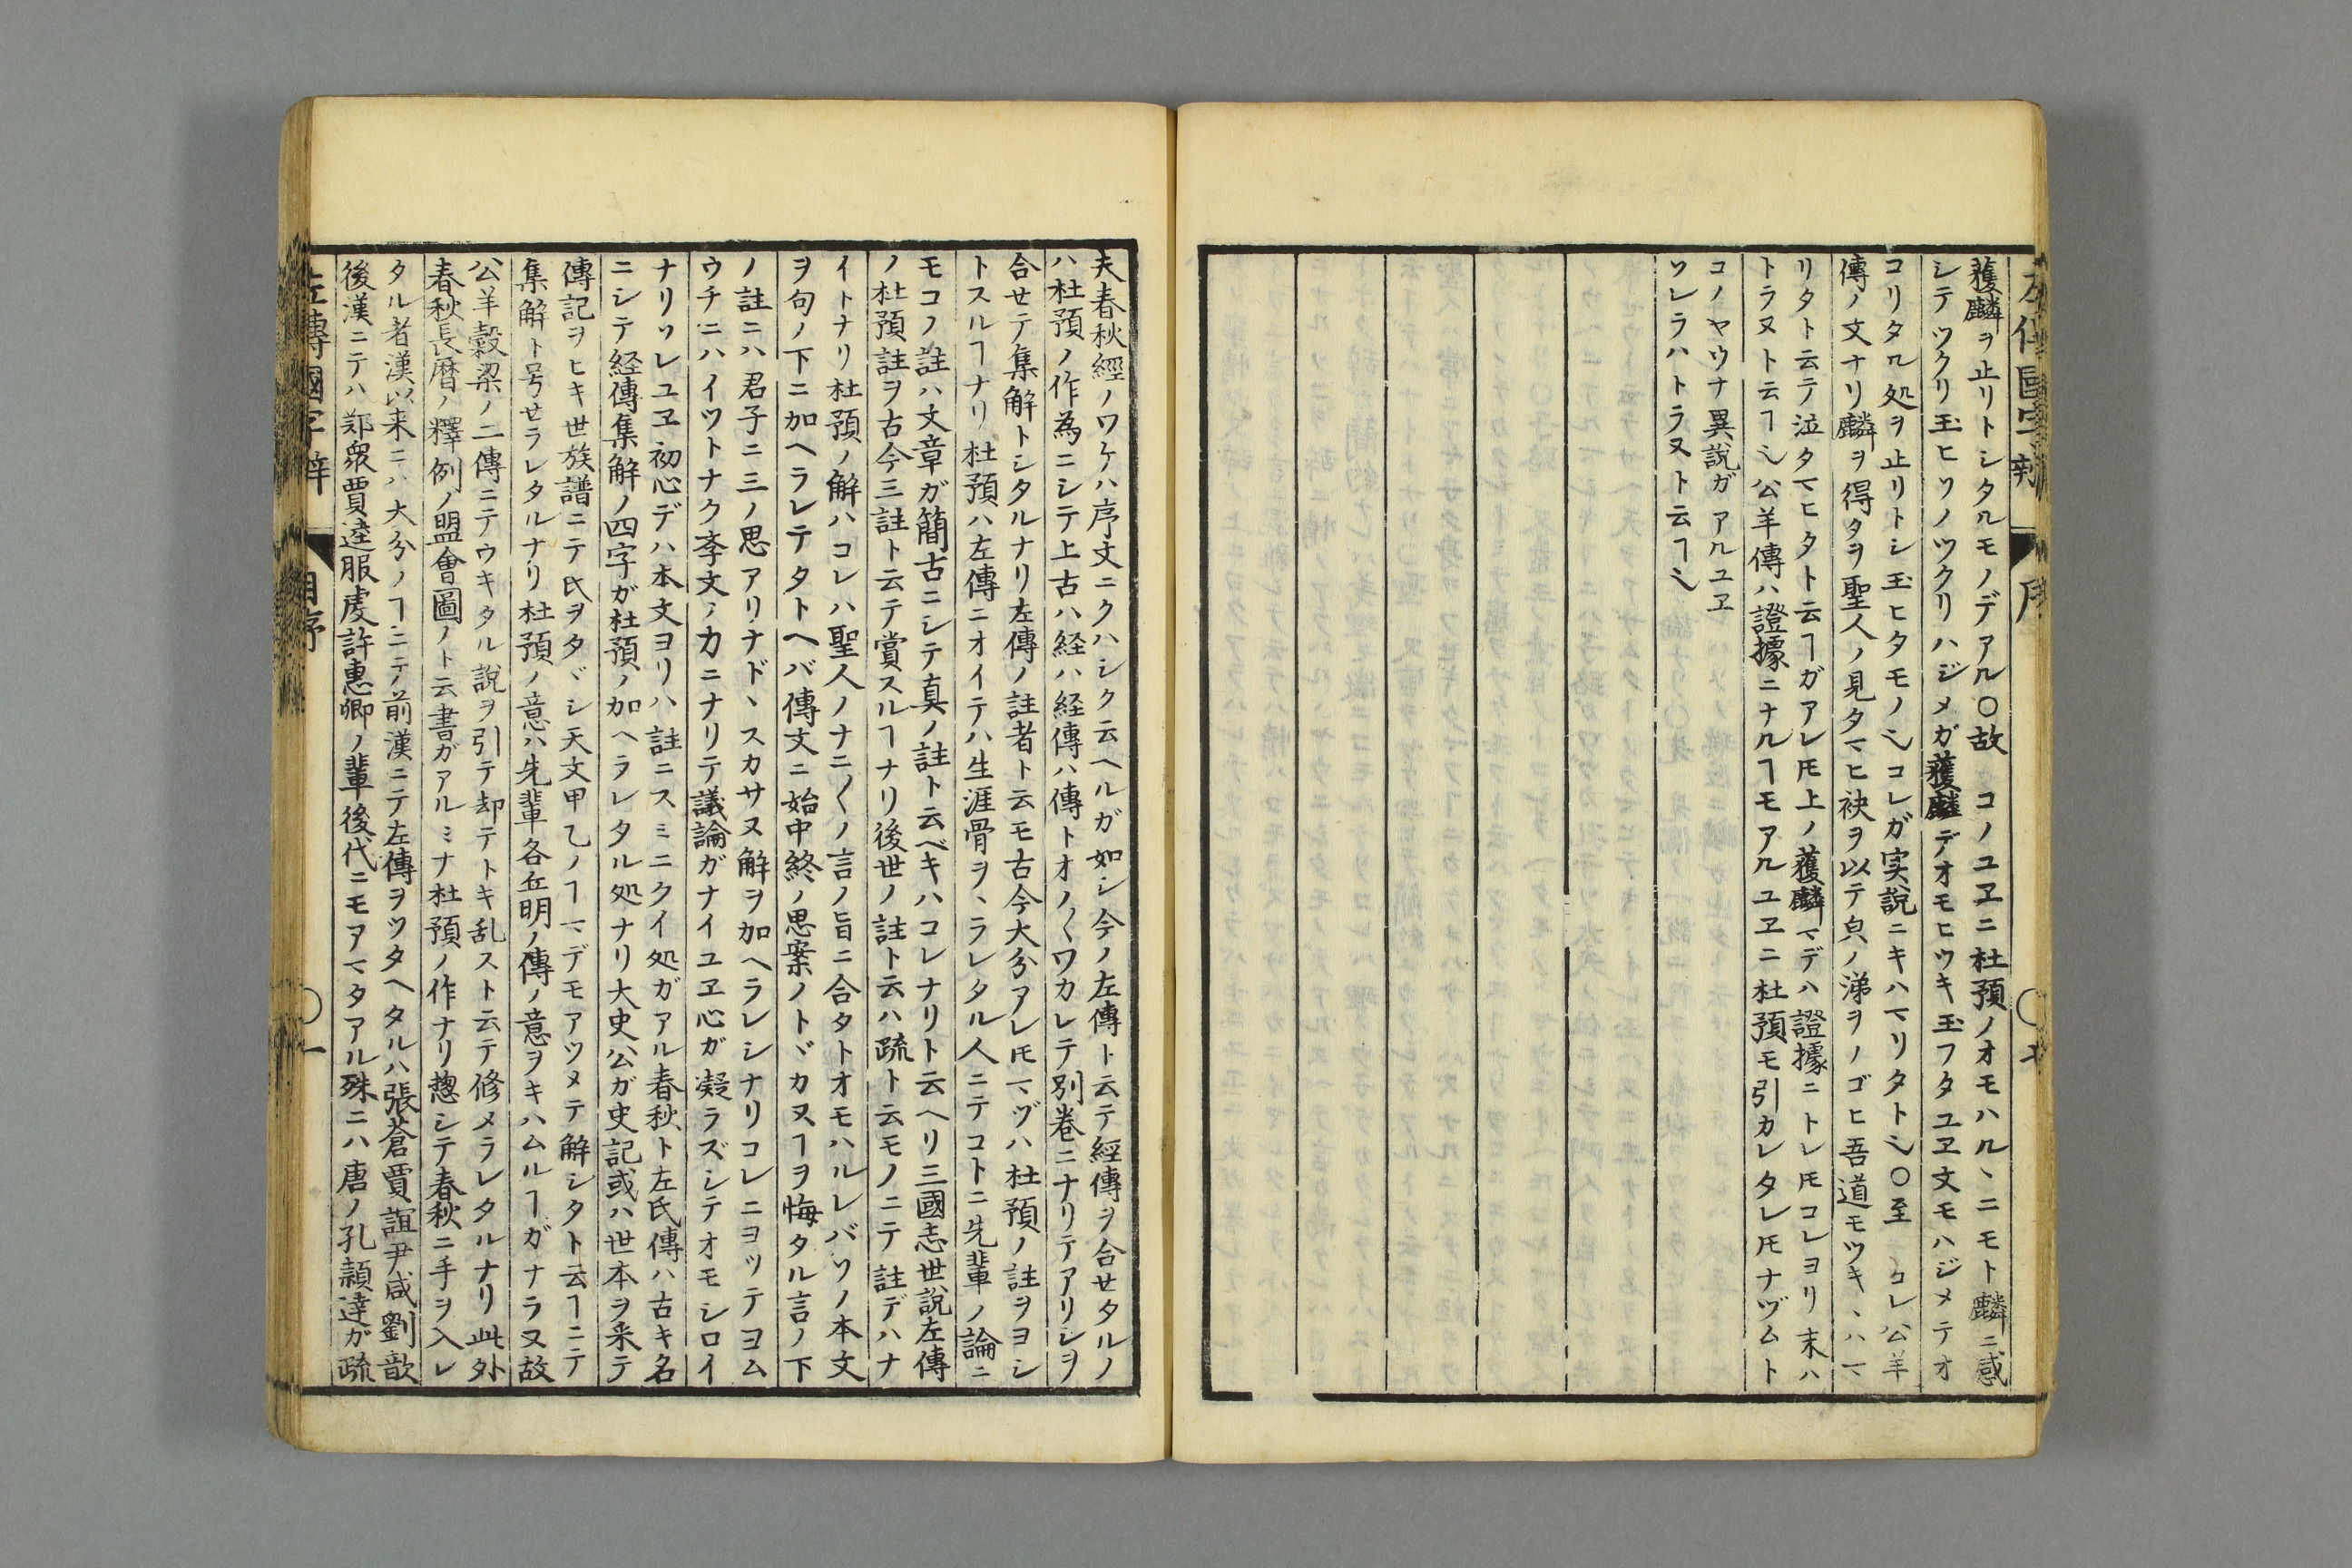 獲麟ヲ止リトシタルモノデアル〇故　コノユヱニ杜預ノオモハルヽニモト麟ニ感
シテツクリ玉ヒソノツクリハジメガ獲麟デオモヒツキ玉フタユヱ文モハジメテオ
コリタル処ヲ止リトシ玉ヒタモノ〆コレガ実説ニキハマリタト〆〇至　コレ公羊
傳ノ文ナリ麟ヲ得タヲ聖人ノ見タマヒ袂ヲ以テ㒵ノ涕ヲノゴヒ吾道モツキヽハマ
リタト云テ泣タマヒタト云ヿガアレ𪜈上ノ獲麟マデハ證據ニトレ𪜈コレヨリ末ハ
トラヌト云ヿ〆公羊傳ハ證據ニナルヿモアルユヱニ杜預モ引カレタレ𪜈ナヅムト
コノヤウナ異説ガアルユヱ
ソレラハトラヌト云ヿ〆
夫春秋經ノワケハ序文ニクハシク云ヘルガ如シ今ノ左傳ト云テ經傳ヲ合セタルノ
ハ杜預ノ作為ニシテ上古ハ経ハ経傳ハ傳トオノ〱ワカレテ別巻ニナリテアリシヲ
合セテ集解トシタルナリ左傳ノ註者ト云モ古今大分アレ𪜈マヅハ杜預ノ註ヲヨシ
トスルヿナリ杜預ハ左傳ニオイテハ生涯骨ヲヽラレタル人ニテコトニ先輩ノ論ニ
モコノ註ハ文章ガ簡古ニシテ真ノ註ト云ベキハコレナリト云ヘリ三國志世説左傳
ノ杜預註ヲ古今三註ト云テ賞スルヿナリ後世ノ註ト云ハ疏ト云モノニテ註デハナ
イトナリ杜預ノ解ハコレハ聖人ノナニ〱ノ言ノ旨ニ合タトオモハルレバソノ本文
ヲ句ノ下ニ加ヘラレテタトヘバ傳文ニ始中終ノ思案ノトヾカヌヿヲ悔タル言ノ下
ノ註ニハ君子ニ三ノ思アリナドヽスカサヌ解ヲ加ヘラレシナリコレニヨッテヨム
ウチニハイツトナク李文ニ力ニナリテ議論ガナイユヱ心ガ凝ラズシテオモシロイ
ナリソレユヱ初心デハ本文ヨリハ註ニスミニクイ処ガアル春秋ト左氏傳ハ古キ名
ニシテ経傳集解ノ四字ガ杜預ノ加ヘラレタル処ナリ大史公ガ史記或ハ世本ヲ釆テ
傳記ヲヒキ世族譜ニテ氏ヲタヾシ天文甲乙ノヿマデモアツメテ解シタト云ヿニテ
集解ト号セラレタルナリ杜預ノ意ハ先輩各丘明ノ傳ノ意ヲキハムルヿガナラヌ故
公羊穀梁ノ二傳ニテウキタル説ヲ引テ却テトキ乱スト云テ修メラレタルナリ此外
春秋長暦ノ釋例ノ盟會圖ノト云書ガアルミナ杜預ノ作ナリ惣シテ春秋ニ手ヲ入レ
タル者漢以来ニハ大分ノヿニテ前漢ニテ左傳ヲツタヘタルハ張蒼賈誼尹咸劉歆
後漢ニテハ鄭衆賈逵服虔許惠卿ノ輩後代ニモアマタアル殊ニハ唐ノ孔頴達ガ疏